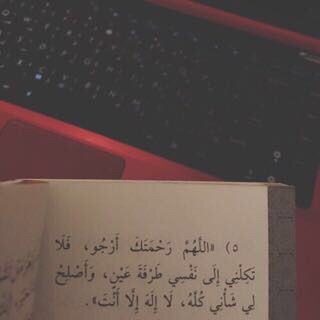 ٥) «اللَّهُمَّ رَحْمَتَكَ أَرْجُو، فَلَا
تَكِلْنِي إِلَى نَفْسِي طَرْفَةَ عَيْنٍ، وَأَصْلِحْ
لِي شَأْنِي كُلَّهُ، لَا إِلَهَ إِلَّا أَنْتَ».